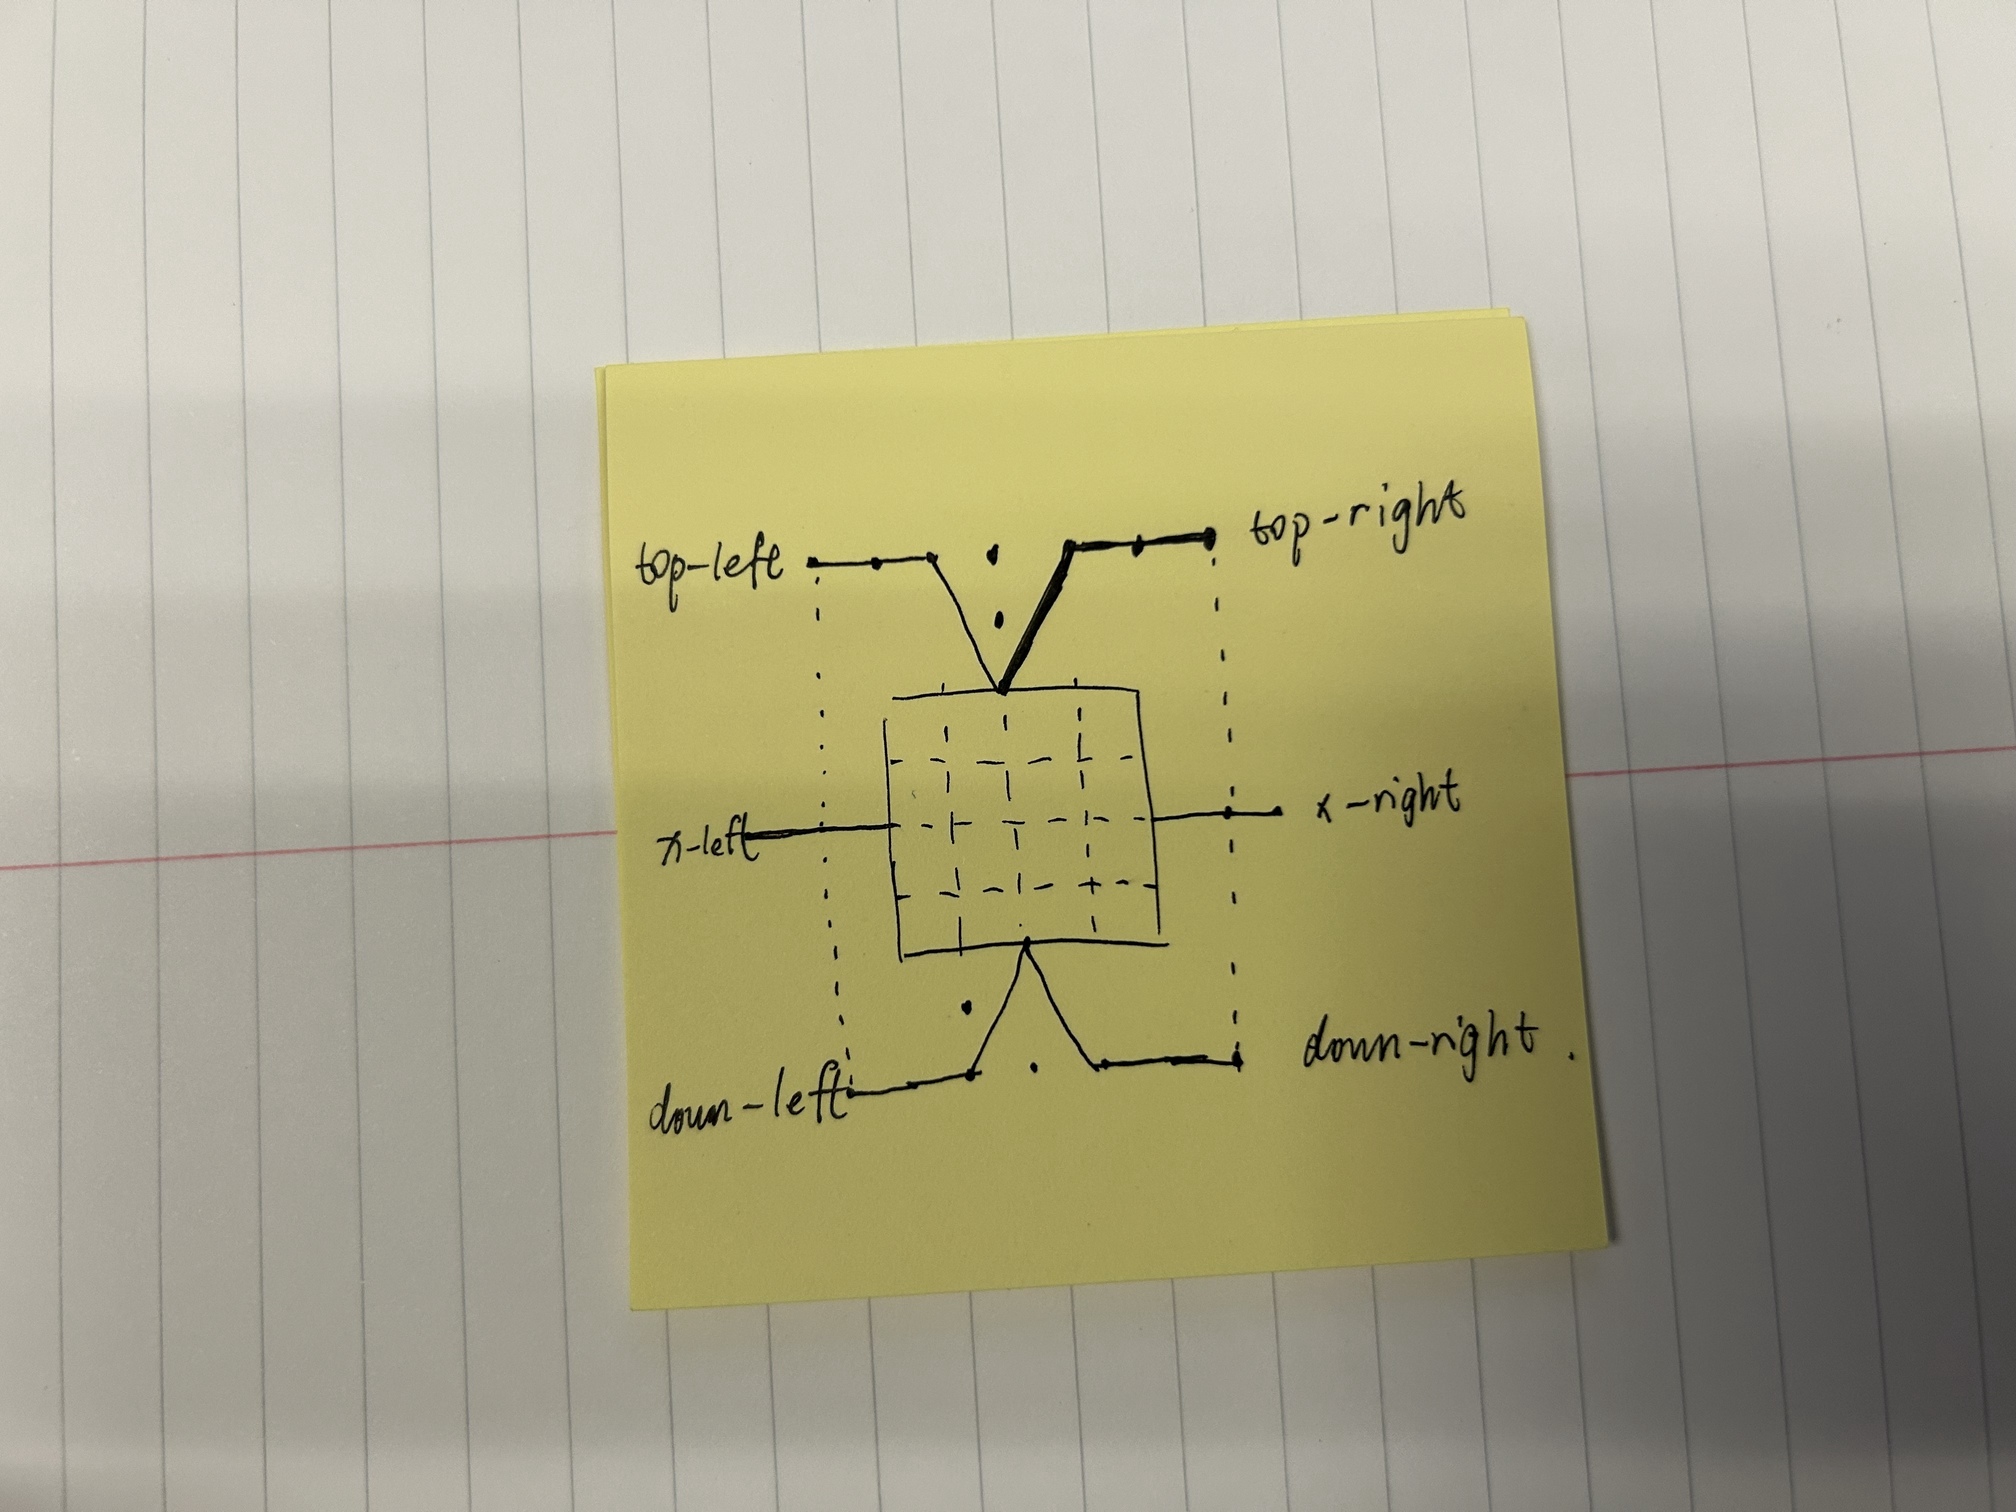 top-left
top-right
x-left
x-right
down-left
down-right.